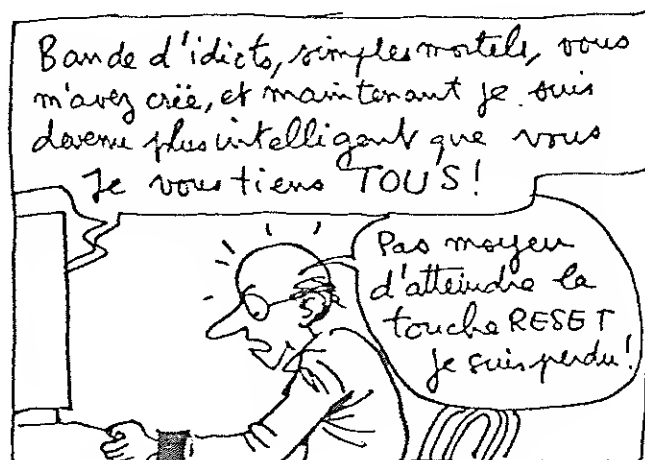 Bande d'idiots, simples mortels, vous
m'avez créé, et maintenant je suis
devenu plus intelligent que vous
Je vous tiens TOUS!
Pas moyen
d'atteindre la
touche RESET
je suis perdu!